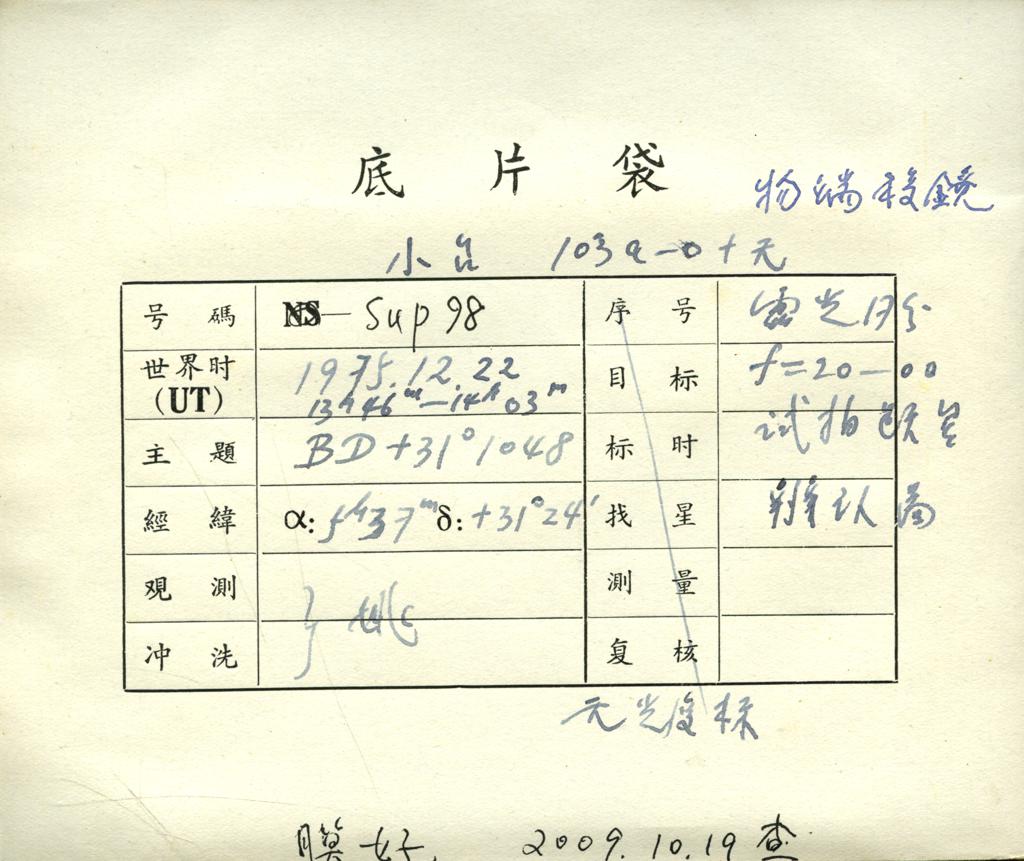 底片袋
物端棱鏡
小台 103a-0+无
号碼 NS— Sup98 序号 露光17分
世界时 (UT) 1975.12.22 目标 f=20-00
13h46m—14h03m
主題 BD+31°1048 标时 试拍
經緯 α: 5h37m δ: +31°24' 找星
观測 姚 測量
冲洗 复核
无光度标
膜好 2009.10.19查